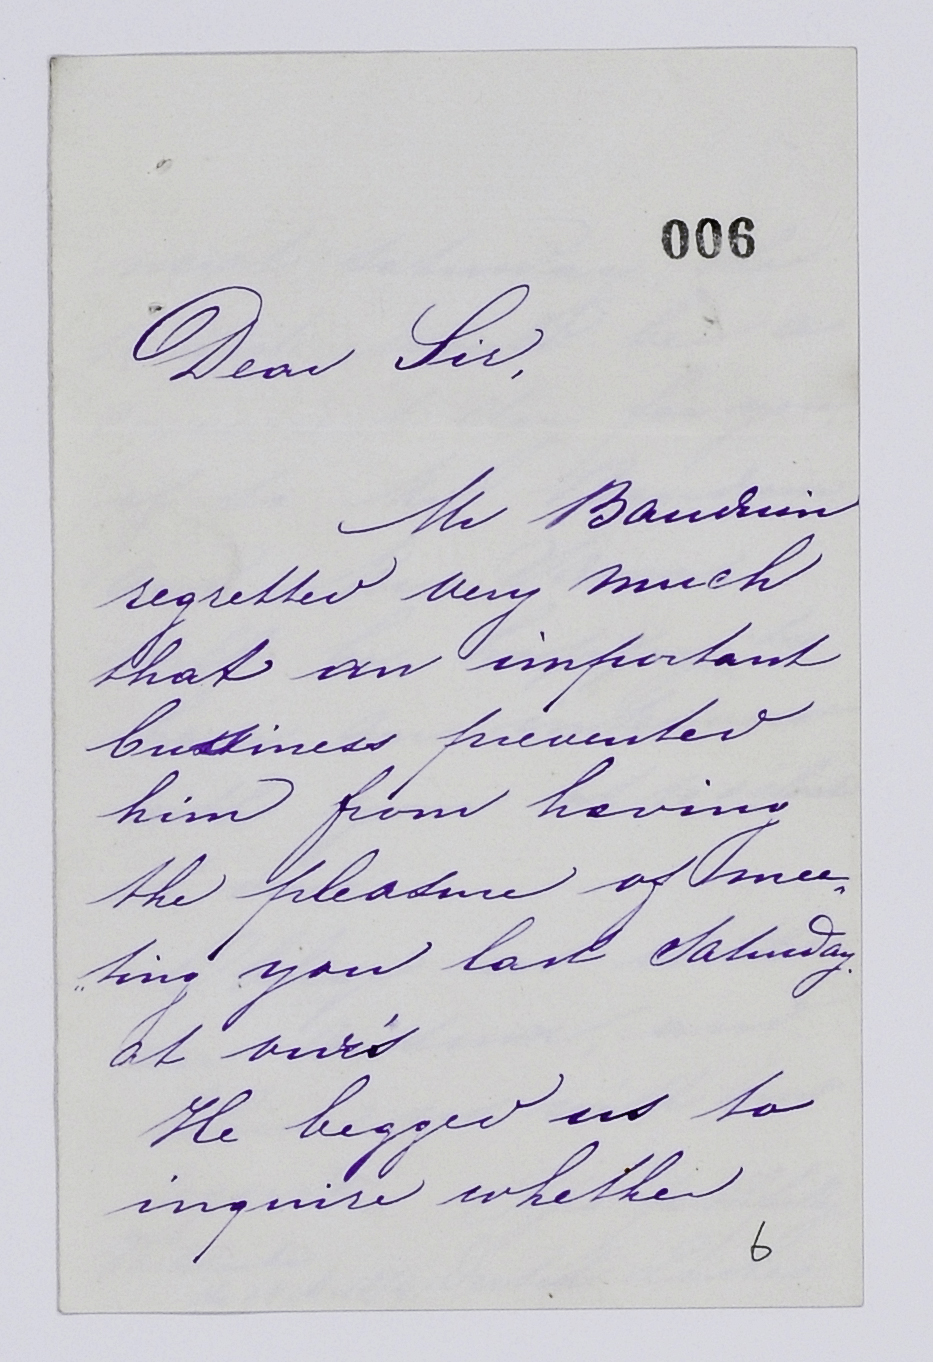 006
Dear Sir,
Mr Bauduin
regretted very much
that an important
bussiness prevented
him from having
the pleasure of mee„
„ting you last Saturday.
at our's
He begged us to
inquire whether
6